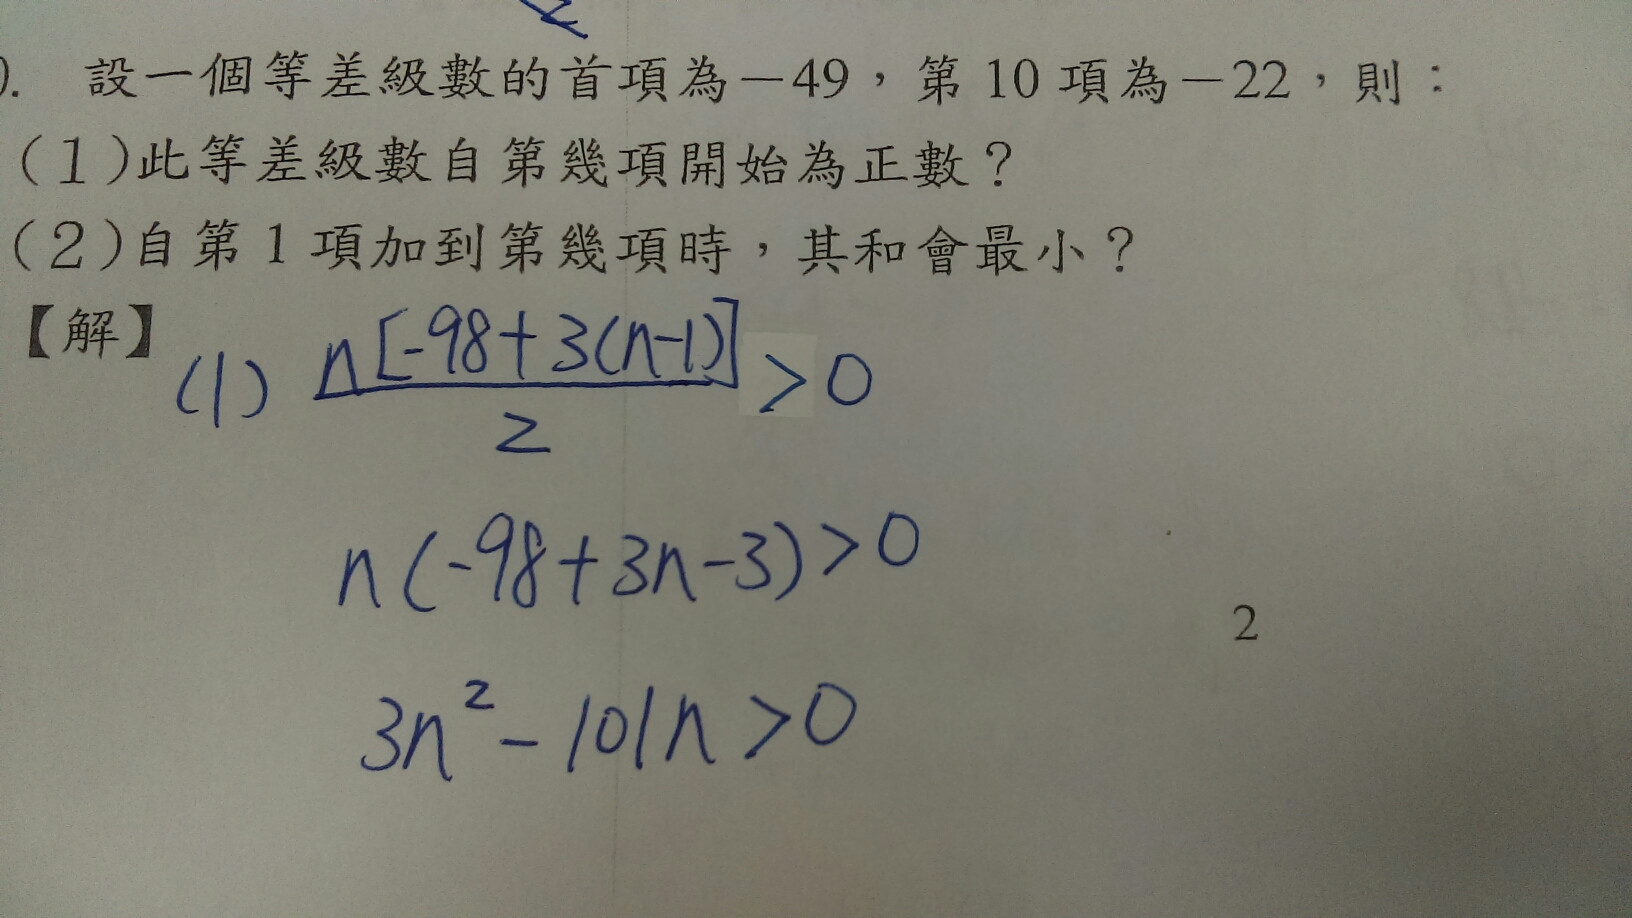 ). 設一個等差級數的首項為－49，第 10 項為－22，則：
(1)此等差級數自第幾項開始為正數？
(2)自第 1 項加到第幾項時，其和會最小？
【解】
(1) n[-98+3(n-1)]/2 >0
n(-98+3n-3)>0
2
3n²-101n>0